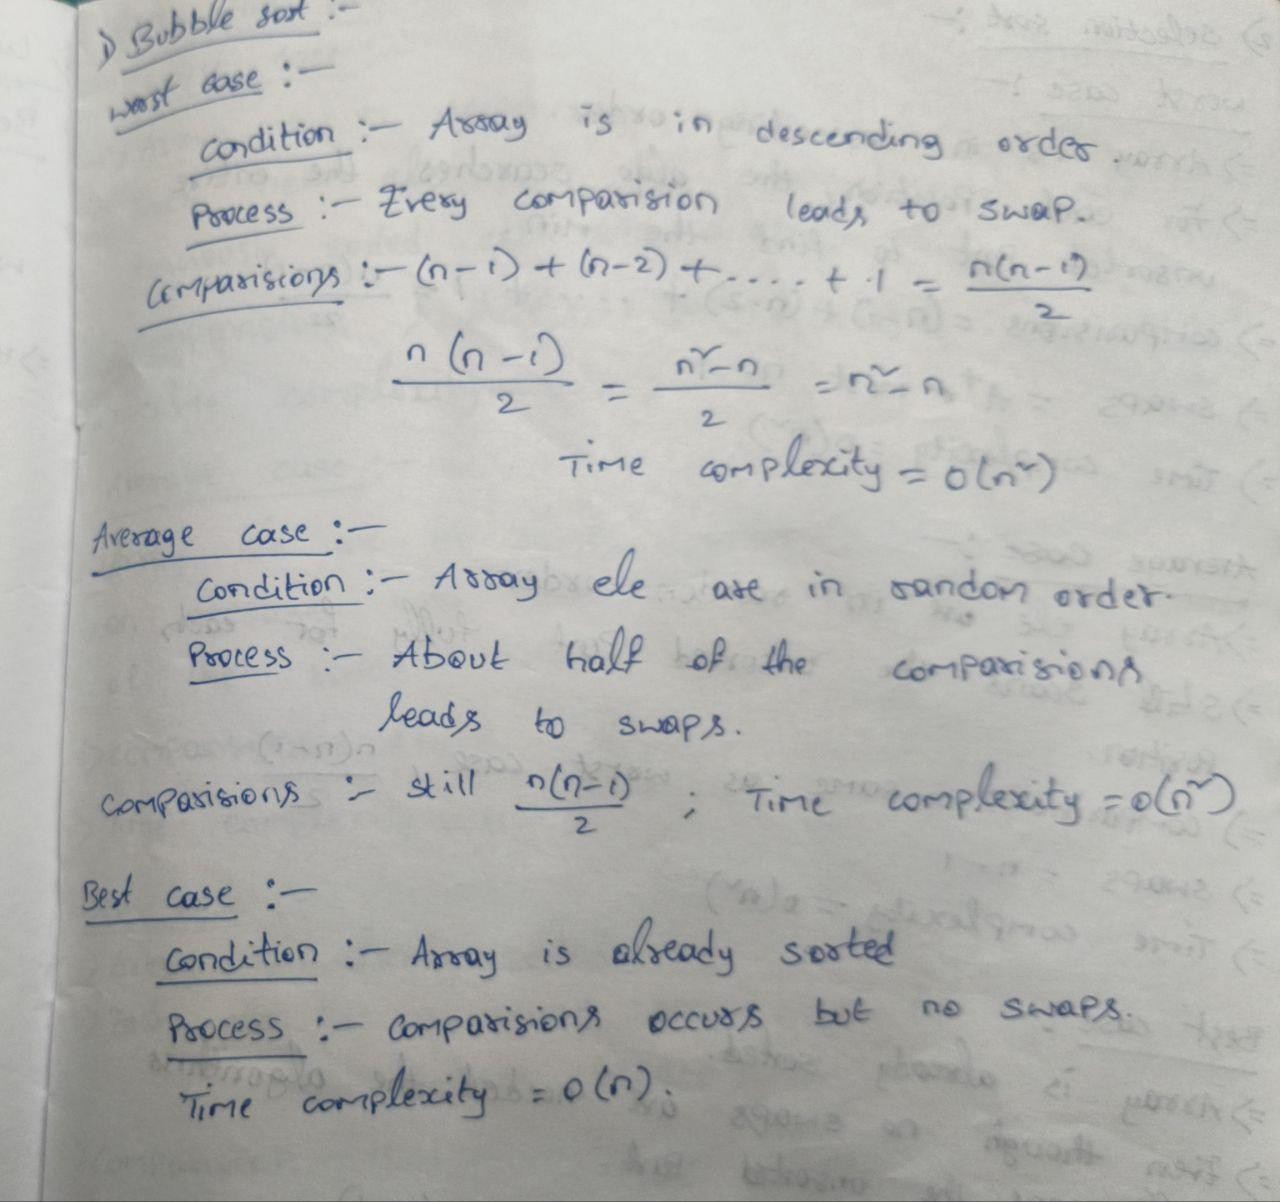 1) Bubble sort :-
worst case :-
condition :- Array is in descending order.
Process :- Every comparision leads to swap.
comparisions :- (n-1) + (n-2) + ..... + 1 = n(n-1)/2
n(n-1)/2 = n²-n/2 = n²-n
Time complexity = O(n²)
Average case :-
condition :- Array ele are in random order.
Process :- About half of the comparisions
leads to swaps.
comparisions :- still n(n-1)/2 ; Time complexity = O(n²)
Best case :-
condition :- Array is already sorted
Process :- comparisions occurs but no swaps.
Time complexity = O(n).